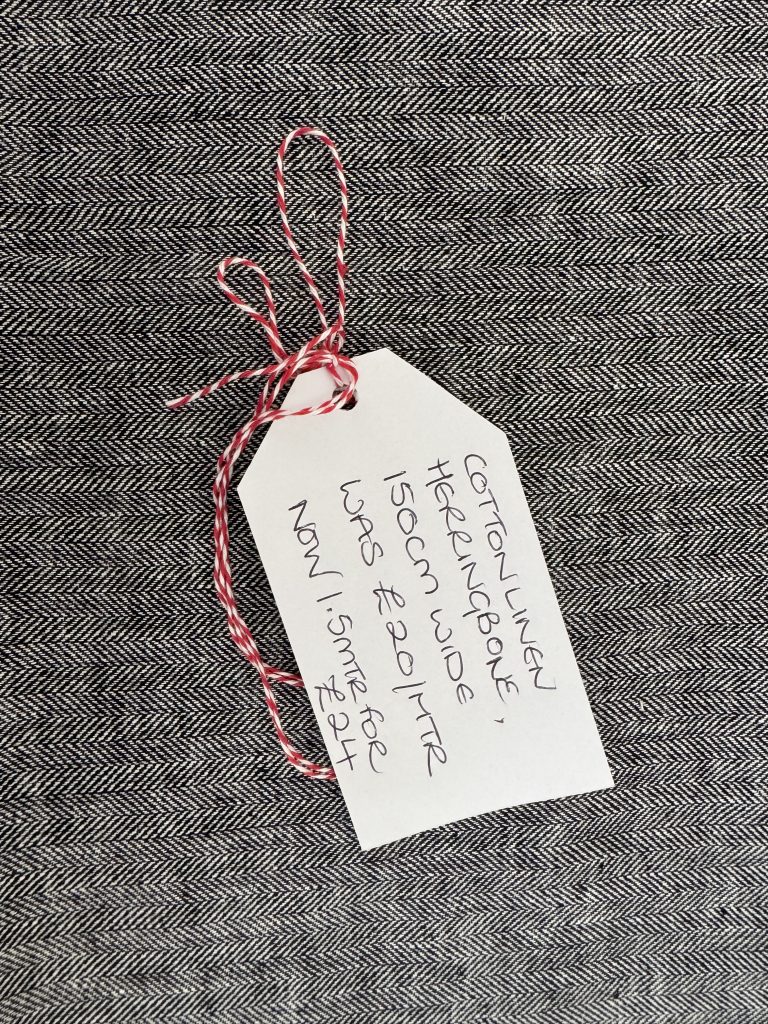 COTTON LINEN
HERRINGBONE,
150CM WIDE
WAS £20/MTR
NOW 1.5MTR FOR
£24